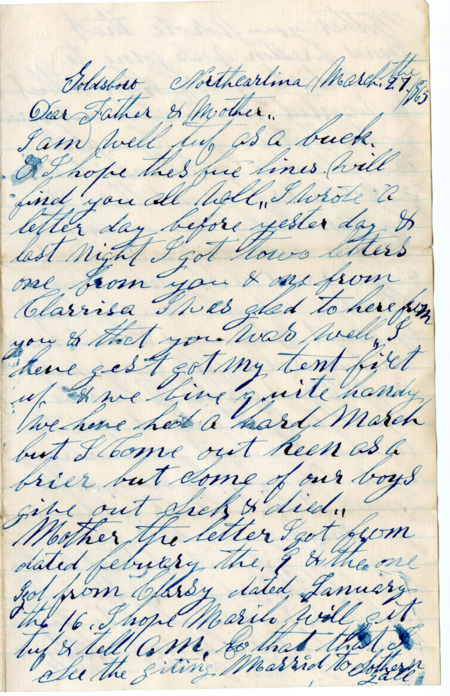 Goldsboro Northcarlina March, the 27 1865
Dear Father & Mother,,
I am well tuf as a buck.
& I hope thes fue lines will
find you all well,, I wrote a
letter day before yester day &
last Night I got towo letters
one from you & one from
Clarrisa I was glad to here from
you & that you was well,, I
heve gest got my tent fixt
up & we live quite handy
We heve hed a hard March
but I Come out keen as a
brier but some of our boys
give out sick & died,,
Mother the letter I got from
dated febuary the, 9 & the one
I got from Clarsy dated, January
the 16. I hope will git
& tell that that I
See the giting Marrid to